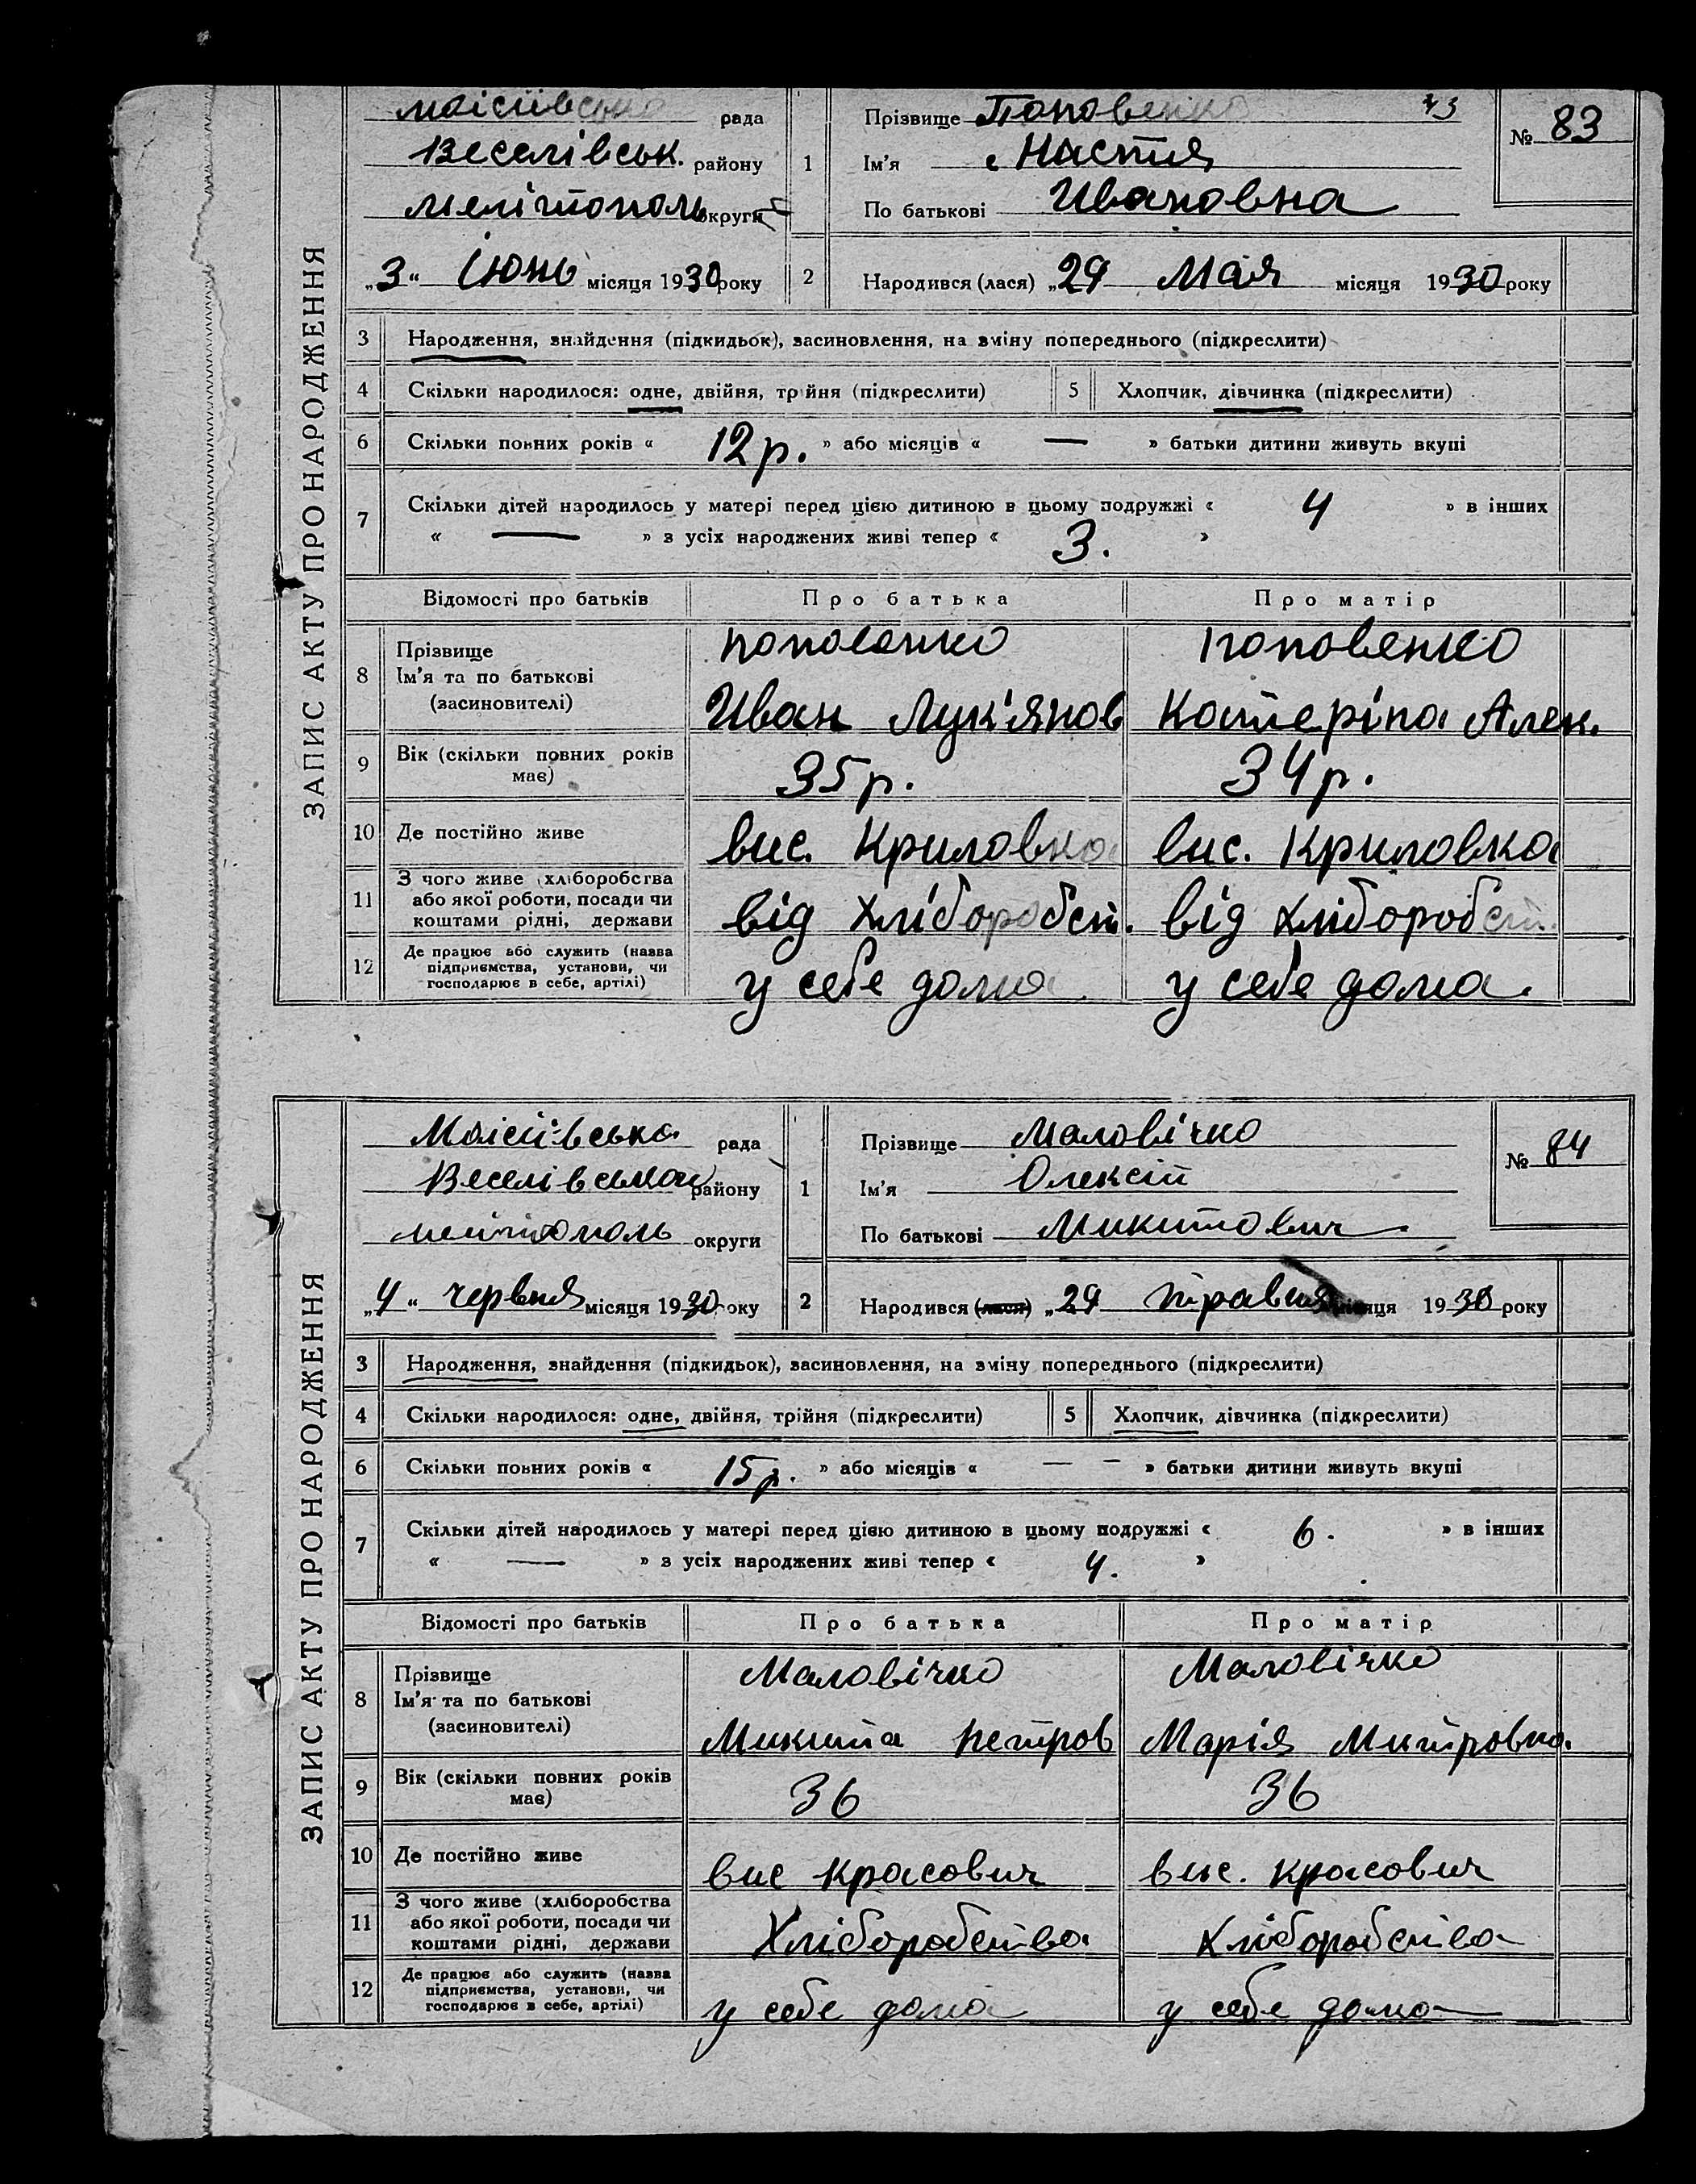 ЗАПИС АКТУ ПРО НАРОДЖЕННЯ
Моісіївська рада
Веселівськ. району
Мелітополь округи
„3“ Іюнь місяця 1930 року
1
Прізвище Поповенко
43
№ 83
Ім'я Настя
По батькові Ивановна
2 Народився (лася) „29 Мая місяця 1930 року
3 Народження, знайдення (підкидьок), засиновлення, на зміну попереднього (підкреслити)
4 Скільки народилося: одне, двійня, трійня (підкреслити) 5 Хлопчик, дівчинка (підкреслити)
6 Скільки повних років « 12 р. » або місяців « — » батьки дитини живуть вкупі
7 Скільки дітей народилось у матері перед цією дитиною в цьому подружжі « 4 » в інших
« — » з усіх народжених живі тепер « 3. »
Відомості про батьків Про батька Про матір
8 Прізвище Поповенко Поповенко
Ім'я та по батькові Иван Лук'янов Катеріна Алек.
(засновителі)
9 Вік (скільки повних років має) 35 р. 34 р.
10 Де постійно живе вис. Криловка вис. Криловка
11 З чого живе (хліборобства
або якої роботи, посади чи від Хліборобст. від хліборобст.
коштами рідні, держави
12 Де працює або служить (назва
підприємства, установи, чи у себе дома у себе дома.
господарює в себе, артілі)
ЗАПИС АКТУ ПРО НАРОДЖЕННЯ
Моісіївська рада
Веселівськ району
Мелітополь округи
„4“ червня місяця 1930 року
1
Прізвище Маловічко
№ 84
Ім'я Олексій
По батькові Микитович
2 Народився (лася) „29 травня місяця 1930 року
3 Народження, знайдення (підкидьок), засиновлення, на зміну попереднього (підкреслити)
4 Скільки народилося: одне, двійня, трійня (підкреслити) 5 Хлопчик, дівчинка (підкреслити)
6 Скільки повних років « 15 р. » або місяців « — — » батьки дитини живуть вкупі
7 Скільки дітей народилось у матері перед цією дитиною в цьому подружжі « 6. » в інших
« — » з усіх народжених живі тепер « 4. »
Відомості про батьків Про батька Про матір
8 Прізвище Маловічко Маловічко
Ім'я та по батькові
(засиновителі) Микита Петров Марія Митровна.
9 Вік (скільки повних років має) 36 36
10 Де постійно живе вис Красович вис. Красович
11 З чого живе (хліборобства
або якої роботи, посади чи Хліборобства хліборобства
коштами рідні, держави
12 Де працює або служить (назва
підприємства, установи, чи у себе дома у себе дома
господарює в себе, артілі)